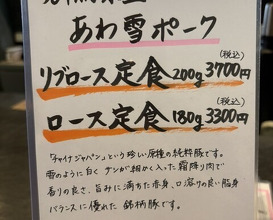 あわ雪ポーク
(税込)
リブロース定食 200g 3700円
(税込)
ロース定食 180g 3300円
「チャイナジャパン」という珍しい原種の純粋豚です。
雪のように白く サシが細かく入った霜降り肉で
香りの良さ、旨みに満ちた赤身、口溶りの良い脂身
バランスに優れた 銘柄豚です。